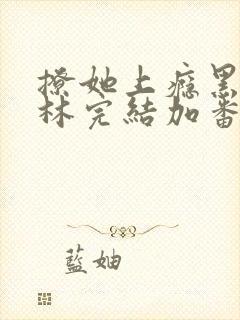 撩她上瘾黑
林完結加番
藍妯